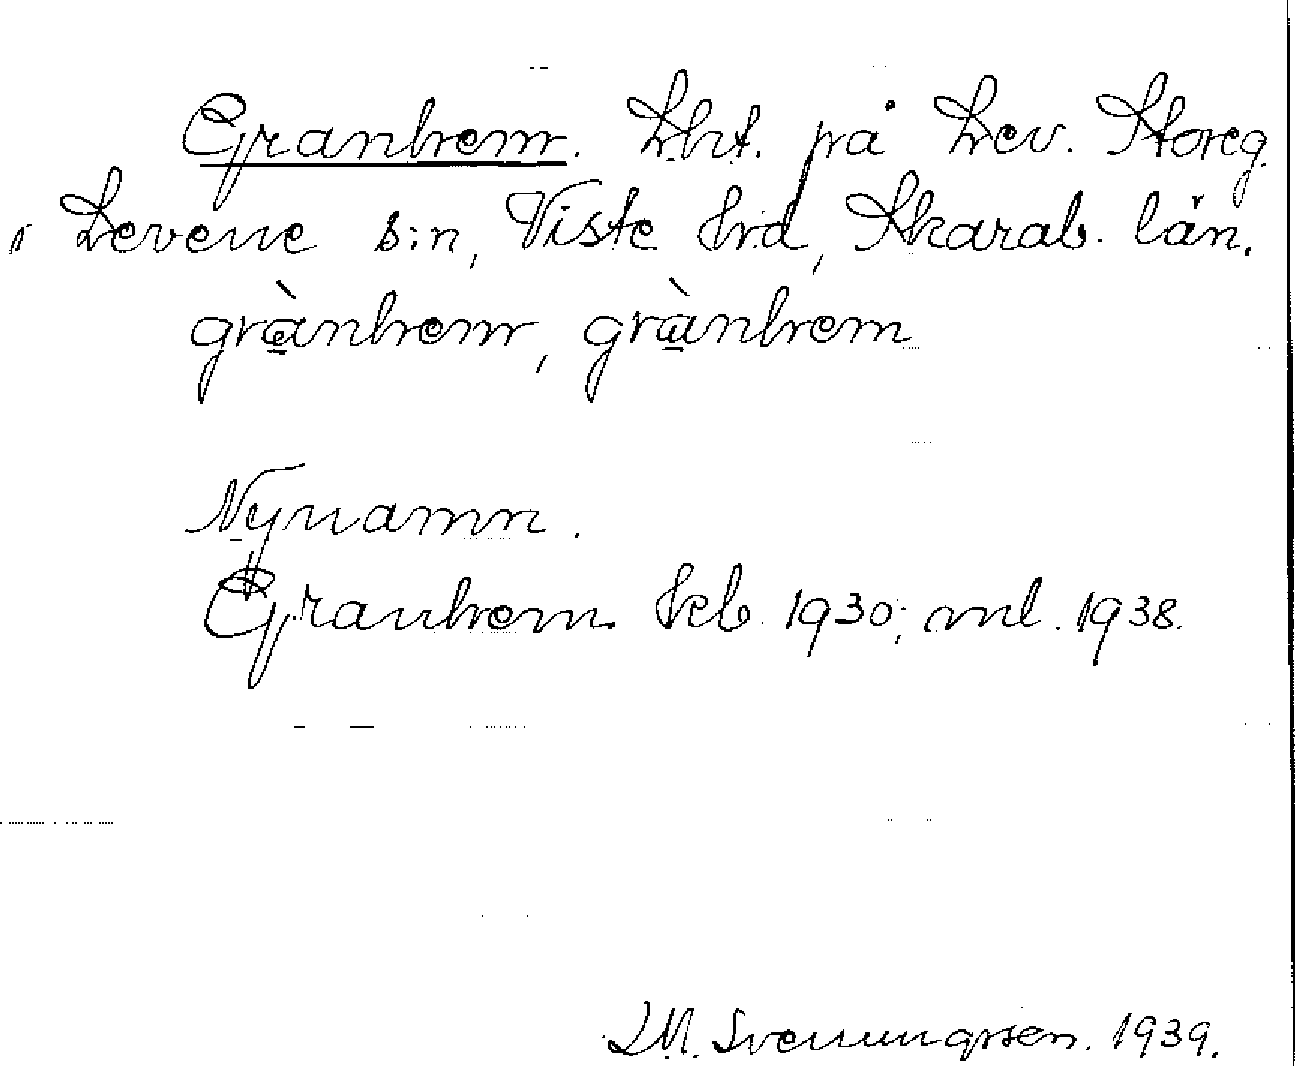 Granhem. Lht. på Lev. Storeg.
i Levene s:n, Viste hrd, Skarab. län.
grànhem, grànhem
Nynamn.
Granhem Jeb 1930; ml. 1938.
I.M. Svenungsson. 1939.